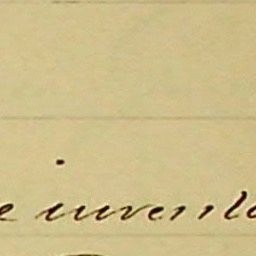 e inventa